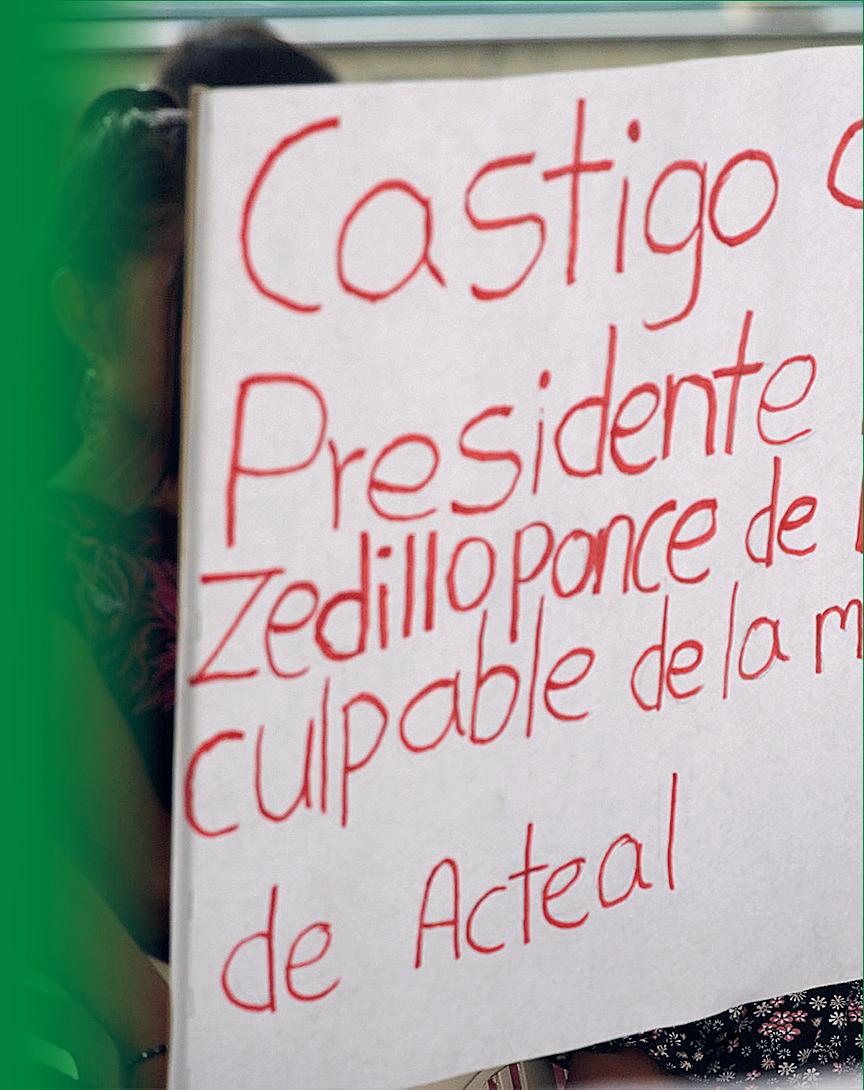 Castigo
Presidente
Zedillo ponce de
culpable de la
de Acteal